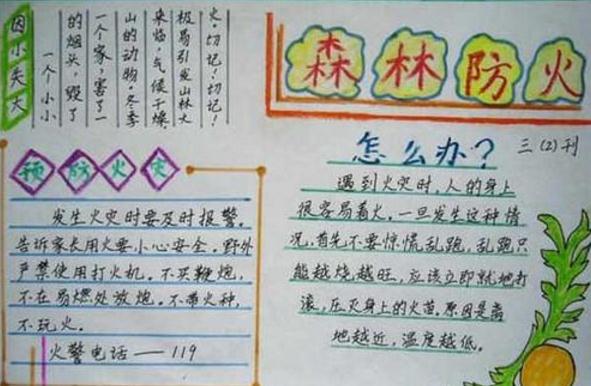 因小失大
一个小小
的烟头,毁了
一个家,害了一
山的动物。冬季
来临,气候干燥,
极易引发山林大
火,切记!切记!
森林防火
预防火灾
发生火灾时要及时报警。
告诉家长用火要小心安全。野外
严禁使用打火机。不买鞭炮,
不在易燃处放炮。不带火种,
不玩火。
火警电话——119
怎么办?
三(2)刊
遇到火灾时,人的身上
很容易着火。一旦发生这种情
况,首先不要惊慌乱跑,乱跑只
能越烧越旺,应该立即就地打
滚,压灭身上的火苗,原因是离
地越近,温度越低。